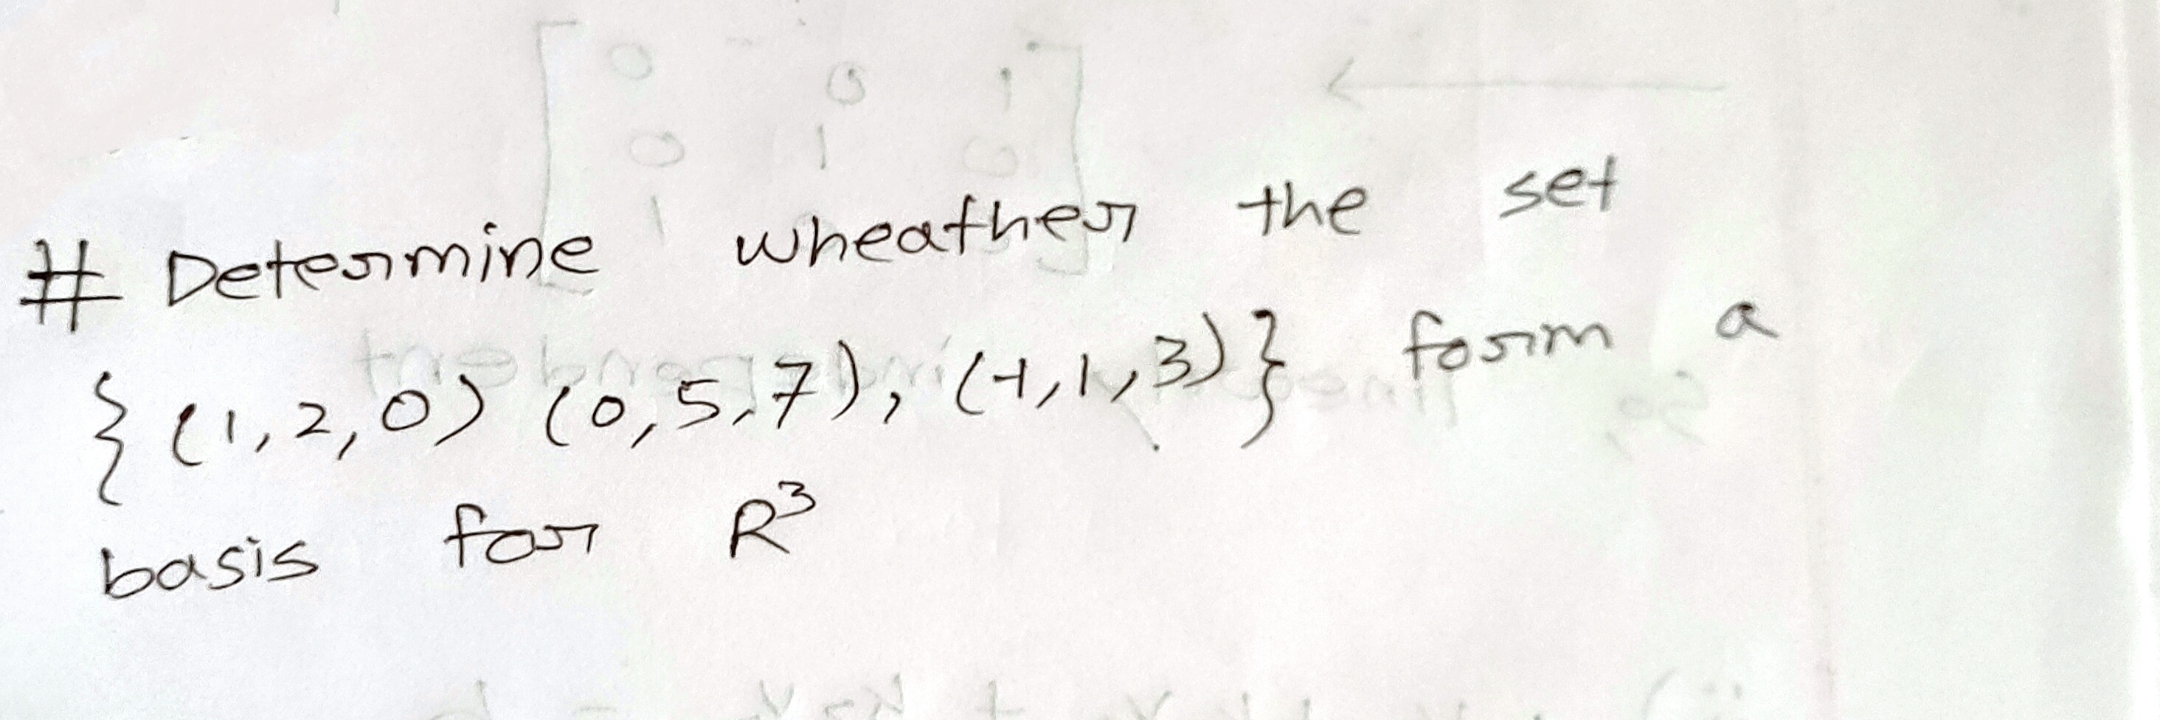 # Determine wheather the set
{(1,2,0) (0,5,7), (-1,1,3)} form a
basis for R³